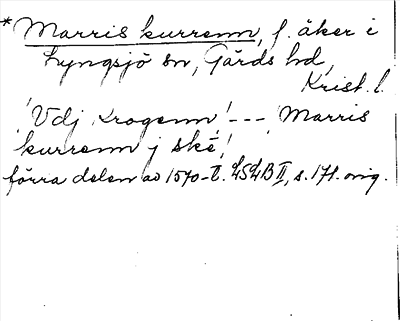 * Marris kurrenn, f. åker i
Lyngsjö sn, Gärds hd,
Krist. l.
'Vdj Krogenn' --- 'Marris
kurrenn j skê'
förra delen av 1570-t. LSLB II, s. 171. orig.